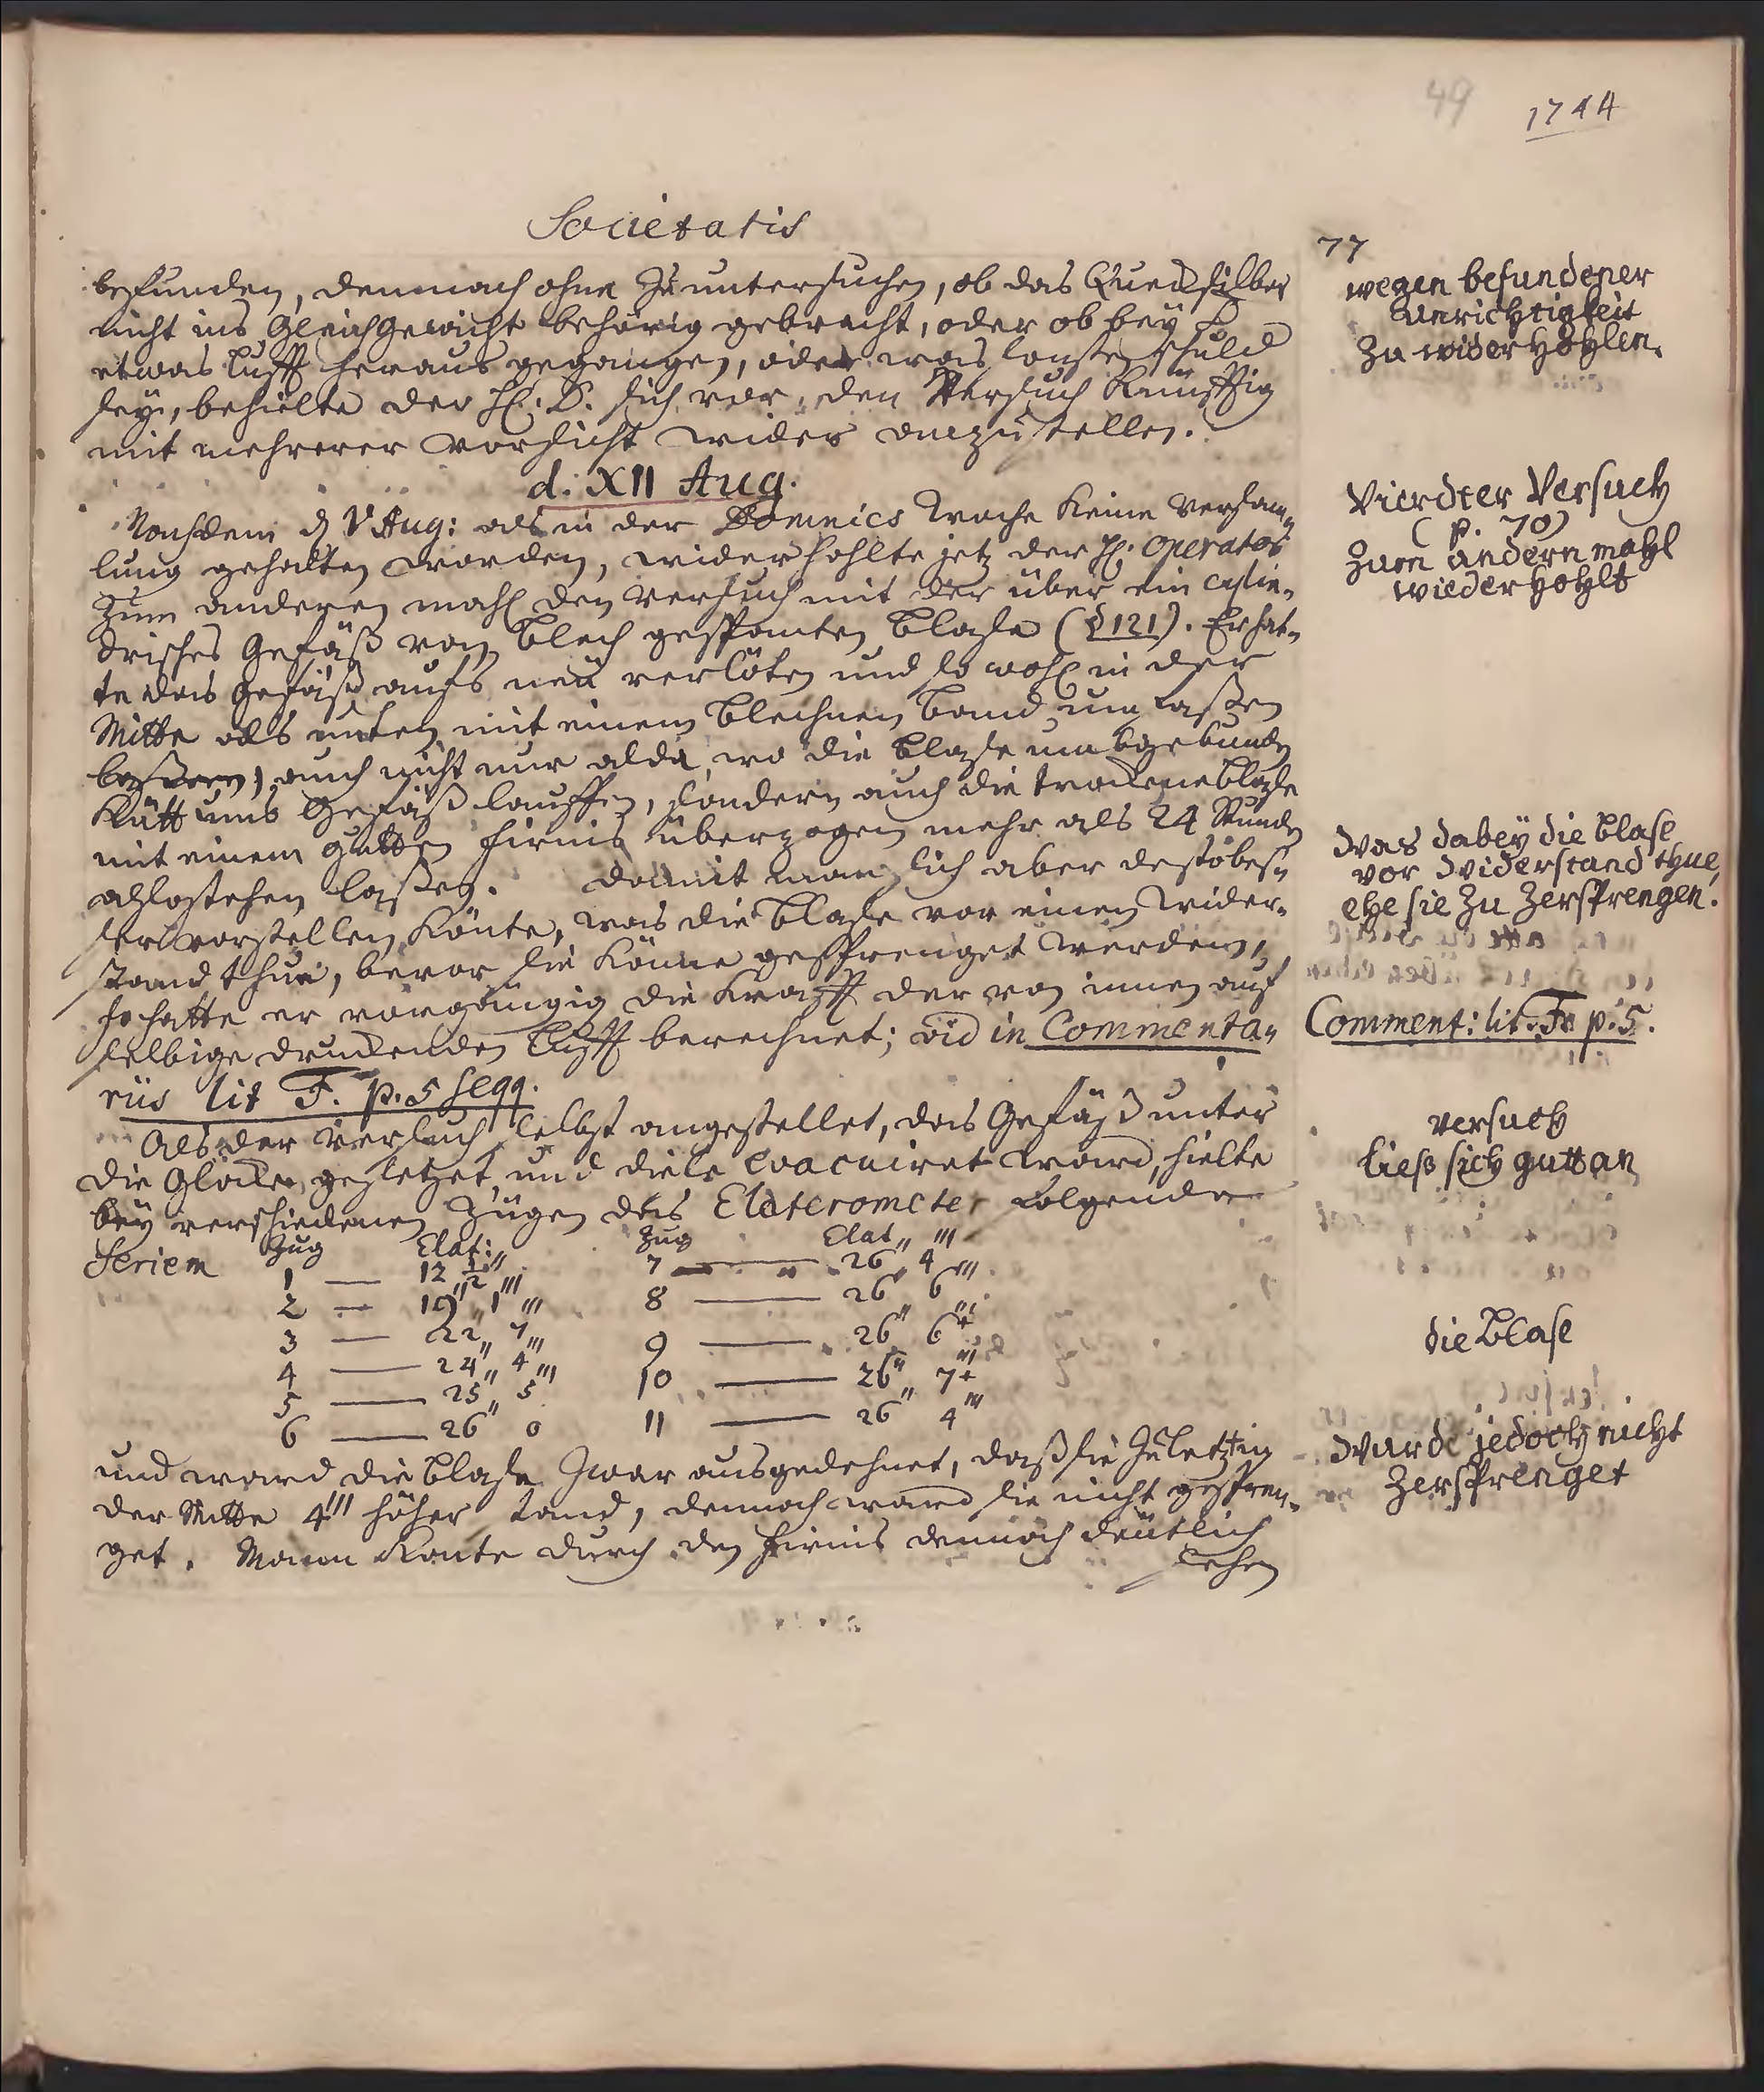 49
1744
Societatis
77
befunden, dennoch ohne zu untersuchen, ob das Quecksilber
nicht ins Gleichgewicht behörig gebracht, oder ob bey
etwas Lufft heraus gegangen, oder was sonsten schuld
sey, behielte der H. D. sich vor, den Versuch künfftig
mit mehrerer vorsicht wider anzustellen.
wegen befundener
Unrichtigkeit
zu widerhohlen.
d. XII Aug.
Nachdem d V Aug: als in der Dominics Woche keine versam„
lung gehalten worden, widerhohlte jetz der H. Operator
zum anderen mahl den versuch mit der über ein cylin„
drisches Gefäß von blech gespanten blase (§ 121). Er hat„
te das Gefäß aufs neü verlöten und so wohl in der
Mitte als unten mit einem blechnen band umfaßen
laßen, auch nicht nur alda, wo die blase umbgebunden
Kütt ums Gefäß lauffen, sondern auch die trockene blase
mit einem gutten firnis überzogen mehr als 24 Stunden
also stehen laßen. Damit man sich aber desto bes„
ser vorstellen könte, was die blase vor einen wider„
stand thue, bevor sie könne gesprenget werden,
so hatte er vorgängig die Krafft der von innen auf
selbige druckenden Lufft berechnet; vid in Commenta„
riis lit F. p. 5 seqq.
Vierdter Versuch
(p. 70)
zum andern mahl
wiederhohlt
Was dabey die blase
vor Widerstand thue,
ehe sie zu zersprengen.
Comment: lit. F. p. 5.
Als der versuch selbst angestellet, das Gefäß unter
die Glocke gesetzet und diese evacuiret ward, hielte
bey verschiedenen Zügen das Elaterometer folgende
Seriem Zug Elat: Zug Elat„ '''
1 — 12 „ 1/2 ''' 7 — 26 „ 4 '''
2 — 19 „ 1 ''' 8 — 26 " 6 '''
3 — 22 „ 7 ''' 9 — 26 " 6 +
4 — 24 „ 4 ''' 10 — 26 " 7 +
5 — 25 " 5 11 — 26 " 4 '''
6 — 26 " 0
versuch
ließ sich gutt an
die Blase
und ward die blase zwar ausgedehnet, daß sie zuletzt in
der Mitte 4''' höher stand, dennoch ward sie nicht gespren„
get. Mann konte durch den firnis dennoch deütlich
sehen
wurde jedoch nicht
zersprenget